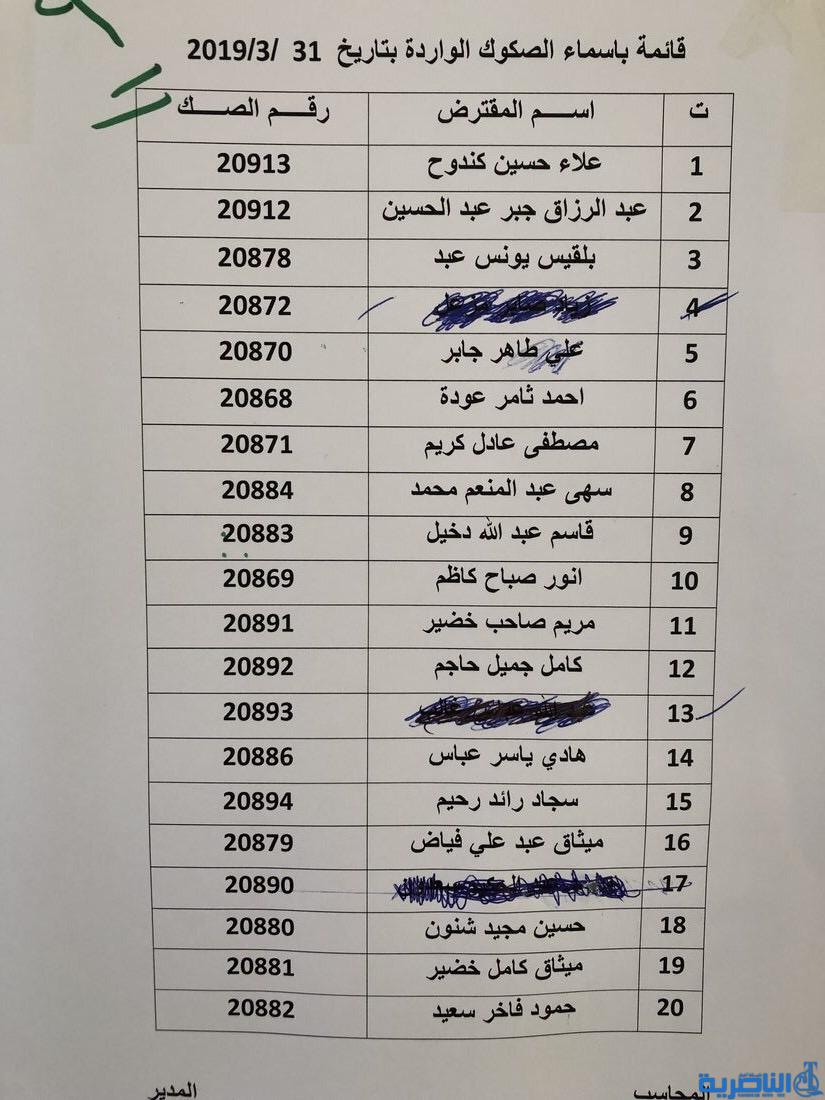 قائمة باسماء الصكوك الواردة بتاريخ 31 /2019/3
ت اســم المقترض رقـــم الصــــك
1 علاء حسين كندوح 20913
2 عبد الرزاق جبر عبد الحسين 20912
3 بلقيس يونس عبد 20878
4 20872
5 علي طاهر جابر 20870
6 احمد ثامر عودة 20868
7 مصطفى عادل كريم 20871
8 سهى عبد المنعم محمد 20884
9 قاسم عبد الله دخيل 20883
10 انور صباح كاظم 20869
11 مريم صاحب خضير 20891
12 كامل جميل حاجم 20892
13 20893
14 هادي ياسر عباس 20886
15 سجاد رائد رحيم 20894
16 ميثاق عبد علي فياض 20879
17 20890
18 حسين مجيد شنون 20880
19 ميثاق كامل خضير 20881
20 حمود فاخر سعيد 20882
المحاسب المدير
الناصرية